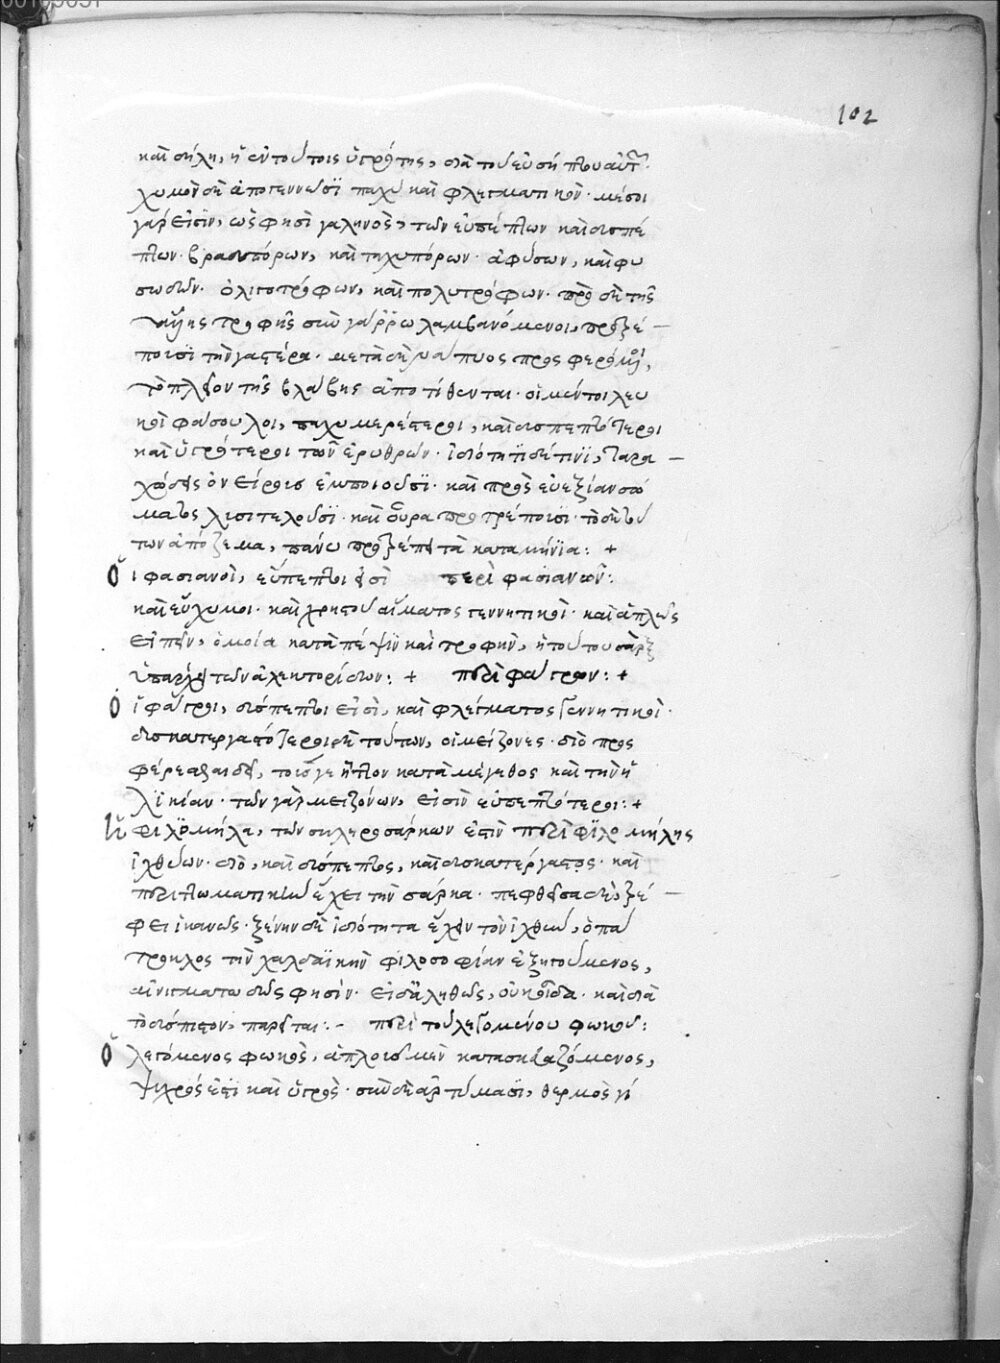 102
χυμὸν δὲ ἀπογεννῶσι παχὺ καὶ φλεγματικὸν· μέσοι
γάρ εἰσιν, ὥς φησι γαληνὸς, τῶν εὐπέπτων καὶ δυσπέ
πτων· βραδυπόρων, καὶ ταχυπόρων· ἀφύσων, καὶ φυ
σωδῶν· ὀλιγοτρόφων, καὶ πολυτρόφων· πρὸ δὲ τῆς
τροφῆς σὺν γάρρω λαμβανόμενοι,
τὴν γαστέρα· μετὰ δὲ νάπυος προσφερόμενοι,
τὸ πλέον τῆς βλάβης ἀποτίθενται· οἱ μέντοι λευ
κοὶ φάσουλοι, παχυμερέστεροι, καὶ δυσπεπτότεροι
καὶ ὑγρότεροι τῶν ἐρυθρῶν· ἰδιότητι δέ τινι, ταρα
χώδεις ὀνείρους ἐμποιοῦσι· καὶ πρὸς εὐεξίαν σώ
ματος λυσιτελοῦσι· καὶ οὖρα προτρέπουσι· τὸ δὲ τού
των ἀπόζεμα, πάνυ προτρέπει τὰ καταμήνια: +
Οἱ φασιανοὶ, εὔπεπτοι εἰσὶ περὶ φασιανῶν:
καὶ εὔχυμοι· καὶ χρηστοῦ αἵματος γεννητικοὶ· καὶ ἁπλῶς
εἰπεῖν, ὁμοία κατὰ πέψιν καὶ τροφὴν, ἡ τούτου σὰρξ
ὑπάρχει τῶν ἀλεκτορίδων: + περὶ φάγρων: +
Οἱ φάγροι, δύσπεπτοι εἰσὶ, καὶ φλέγματος γεννητικοὶ·
δυσκατεργαστότεροι δὲ τούτων, οἱ μείζονες· διὸ προσ
φέρεσθαι δεῖ, τοὺς γε ἧττον κατὰ μέγεθος καὶ τὴν ἡ
λικίαν· τῶν γὰρ μειζόνων, εἰσὶν εὐπεπτότεροι: +
Ἡ φιλομήλα, τῶν σκληροσάρκων ἐστὶν περὶ φιλομήλης
ἰχθύων· διὸ, καὶ δύσπεπτος, καὶ δυσκατέργαστος· καὶ
περιττωματικὴν ἔχει τὴν σάρκα· πεφθεῖσα δὲ, τρέ
φει ἱκανῶς· ξένην δὲ ἰδιότητα ἔχειν τὸν ἰχθὺν, ὁ πα
τρόκλος τὴν χαλδαϊκὴν φιλοσοφίαν ἐξηγούμενος,
αἰνιγματωδῶς φησὶν· εἰ δ' ἀληθῶς, οὐκ οἶδα· καὶ διὰ
τὸ δύσπιστον, παρεῖται: – περὶ τοῦ λεγομένου φωκοῦ:
Ὁ λεγόμενος φωκὸς, ἁπλοῖς μὲν κατασκευαζόμενος,
ψυχρός ἐστι καὶ ὑγρὸς· σὺν δὲ ἀρτύμασι, θερμὸς γί